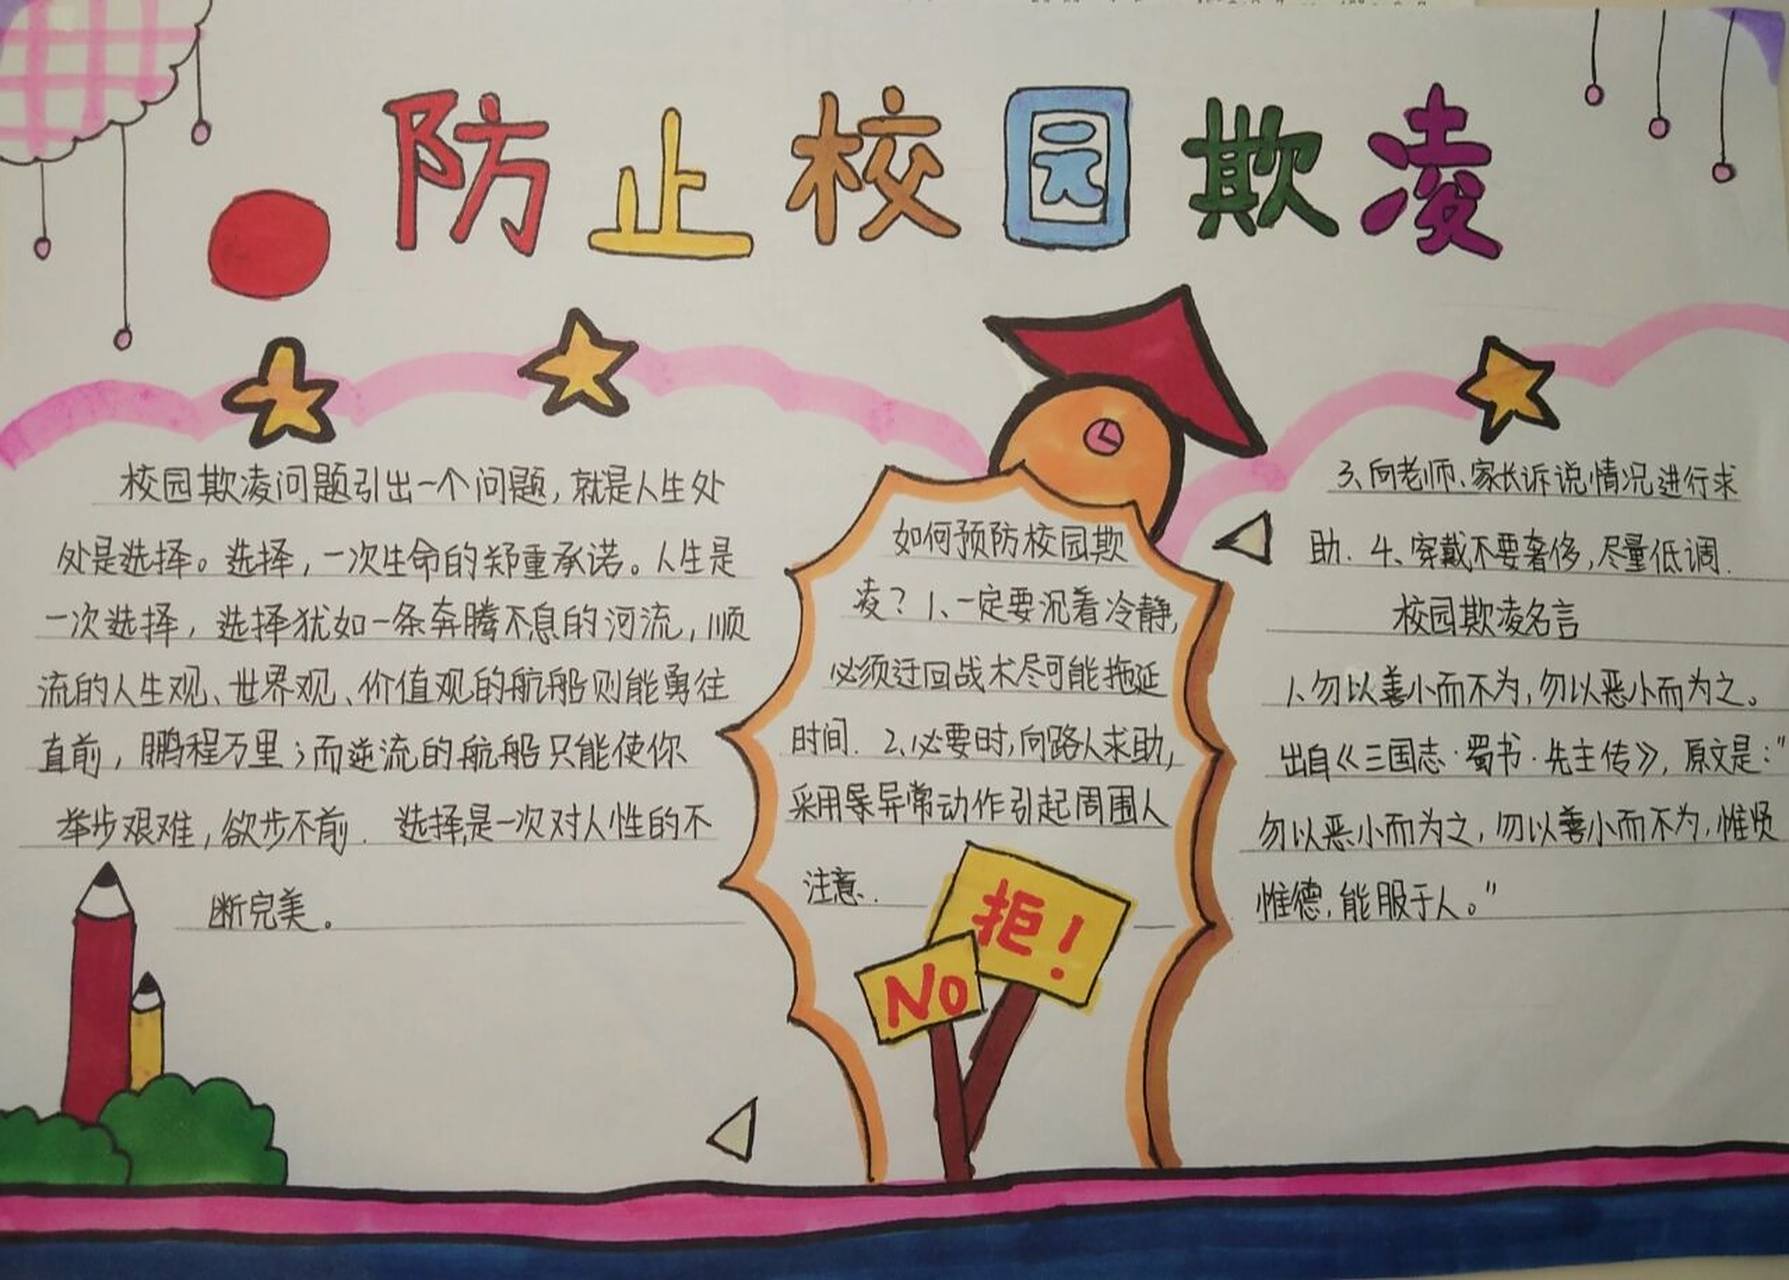 防止校园欺凌
校园欺凌问题引出一个问题，就是人生处
处是选择。选择，一次生命的郑重承诺。人生是
一次选择，选择犹如一条奔腾不息的河流，顺
流的人生观、世界观、价值观的航船则能勇往
直前，鹏程万里；而逆流的航船只能使你
举步艰难，欲步不前．选择，是一次对人性的不
断完美。
如何预防校园欺
凌？1、一定要沉着冷静，
必须迂回战术尽可能拖延
时间．2、必要时，向路人求助，
采用异常动作引起周围人
注意．
拒！
NO
3、向老师、家长诉说情况进行求
助．4、穿戴不要奢侈，尽量低调．
校园欺凌名言
1、勿以善小而不为，勿以恶小而为之。
出自《三国志·蜀书·先主传》，原文是：“
勿以恶小而为之，勿以善小而不为，惟贤
惟德，能服于人。”